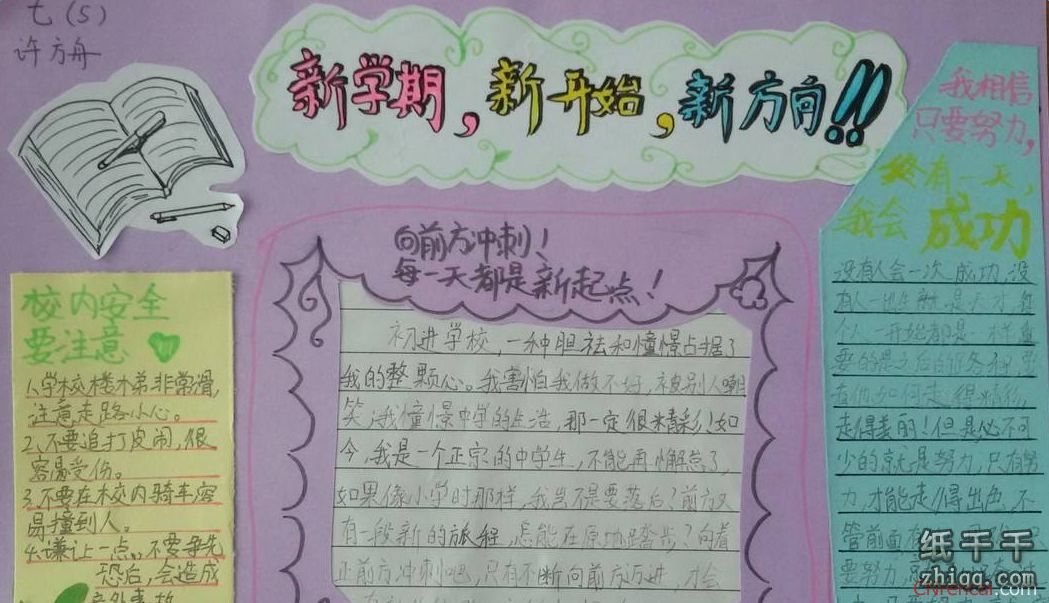 七(5)
许方舟
新学期,新开始,新方向!!
校内安全
要注意
1、学校楼梯非常滑,
注意走路小心。
2、不要追打皮闹,很
容易受伤。
3、不要在校内骑车容
易撞到人。
4、谦让一点,不要争先
恐后,会造成
意外事故
向前方冲刺!
每一天都是新起点!
初进学校,一种胆祛和憧憬占据了
我的整颗心。我害怕我做不好,被别人嘲
笑;我憧憬中学的生活,那一定很精彩!如
今,我是一个正宗的中学生,不能再懈怠了,
如果像小学时那样,我岂不是要落后?前方又
有一段新的旅程,怎能在原地踏步?向着
正前方冲刺吧,只有不断向前方迈进,才会
我相信
只要努力,
终有一天,
我会 成功
没有人会一次成功,没
有人一出生就是天才,每
个人一开始都是一样,重
要的是之后的
走得美丽!但是必不可
少的就是努力,只有努
力才能走得出色,不
管前面有
要努力,
纸千千
zhiqq.com
CNrencai.com